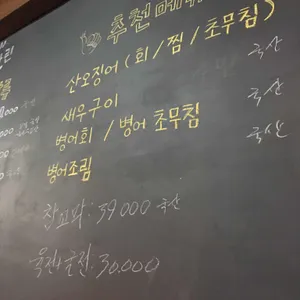 추천메뉴
산오징어 (회 / 찜 / 초무침) 국산
새우구이 국산
병어회 / 병어 초무침 국산
병어조림
참꼬막: 39000 국산
육전+굴전: 30.000